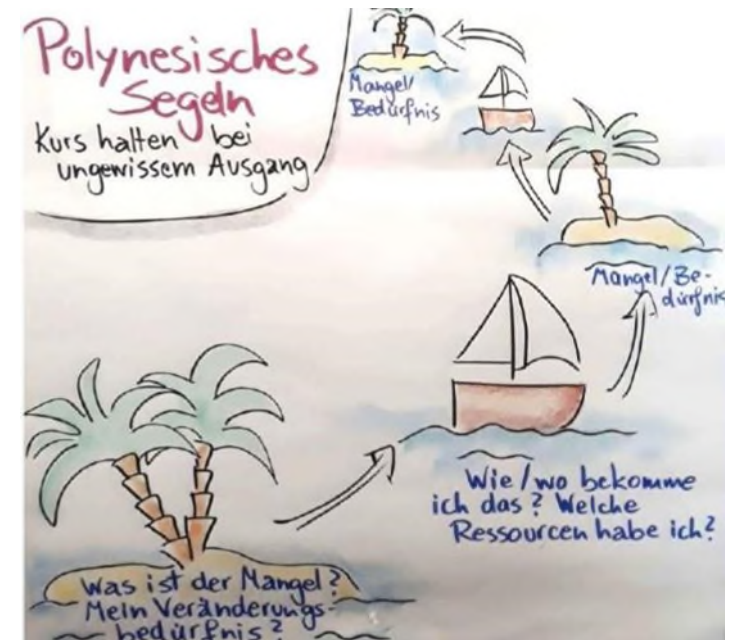 Polynesisches
Segeln
Kurs halten bei
ungewissem Ausgang
Mangel/
Bedürfnis
Mangel/Be-
dürfnis
Wie/wo bekomme
ich das? Welche
Ressourcen habe ich?
Was ist der Mangel?
Mein Veränderungs-
bedürfnis?